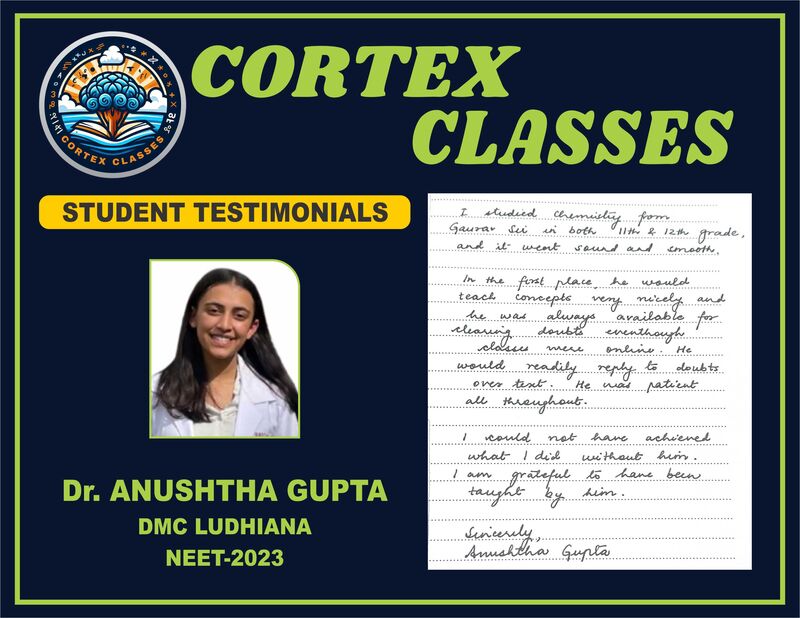 CORTEX
CLASSES
CORTEX CLASSES
STUDENT TESTIMONIALS
I studied chemistry from
Gaurav Sir in both 11th & 12th grade,
and it went sound and smooth.
In the first place, he would
teach concepts very nicely and
he was always available for
clearing doubts eventhough
classes were online. He
would readily reply to doubts
over text. He was patient
all throughout.
I could not have achieved
what I did without him.
I am grateful to have been
taught by him.
Sincerely,
Anushtha Gupta
Dr. ANUSHTHA GUPTA
DMC LUDHIANA
NEET-2023